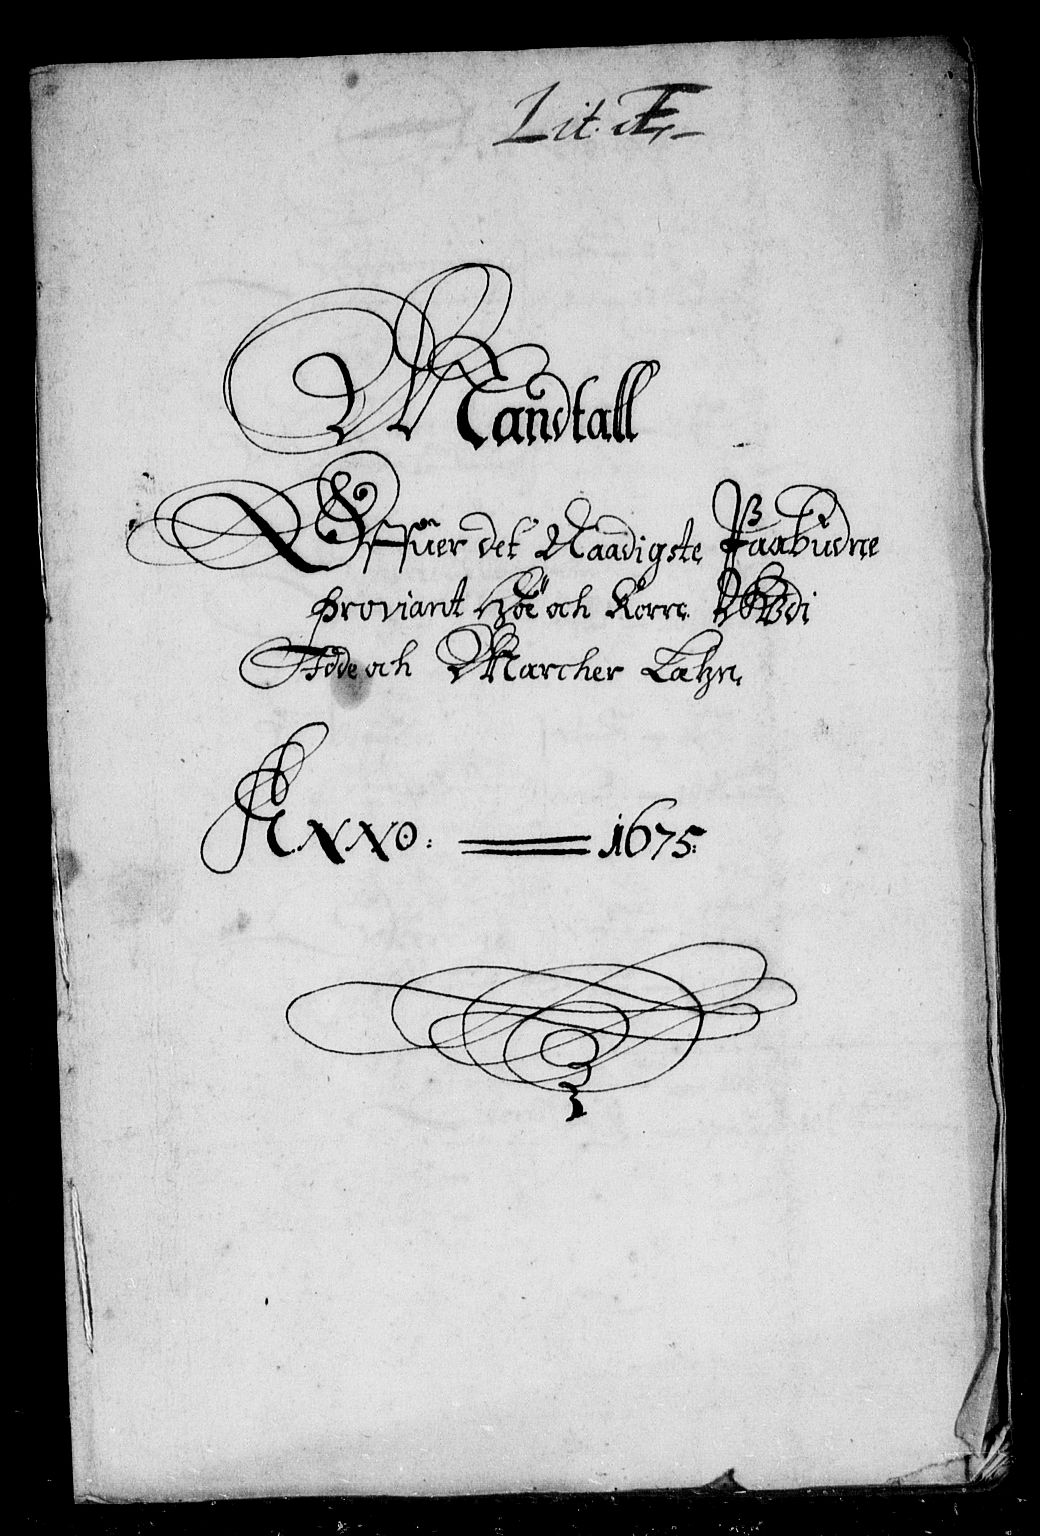 Lit. Æ,-
Mandtall
Offuer det Naadigste Paabudne
Proviant Höe och Korn Udi
Ide och Marcher Læhn,
ANNO: 1675: